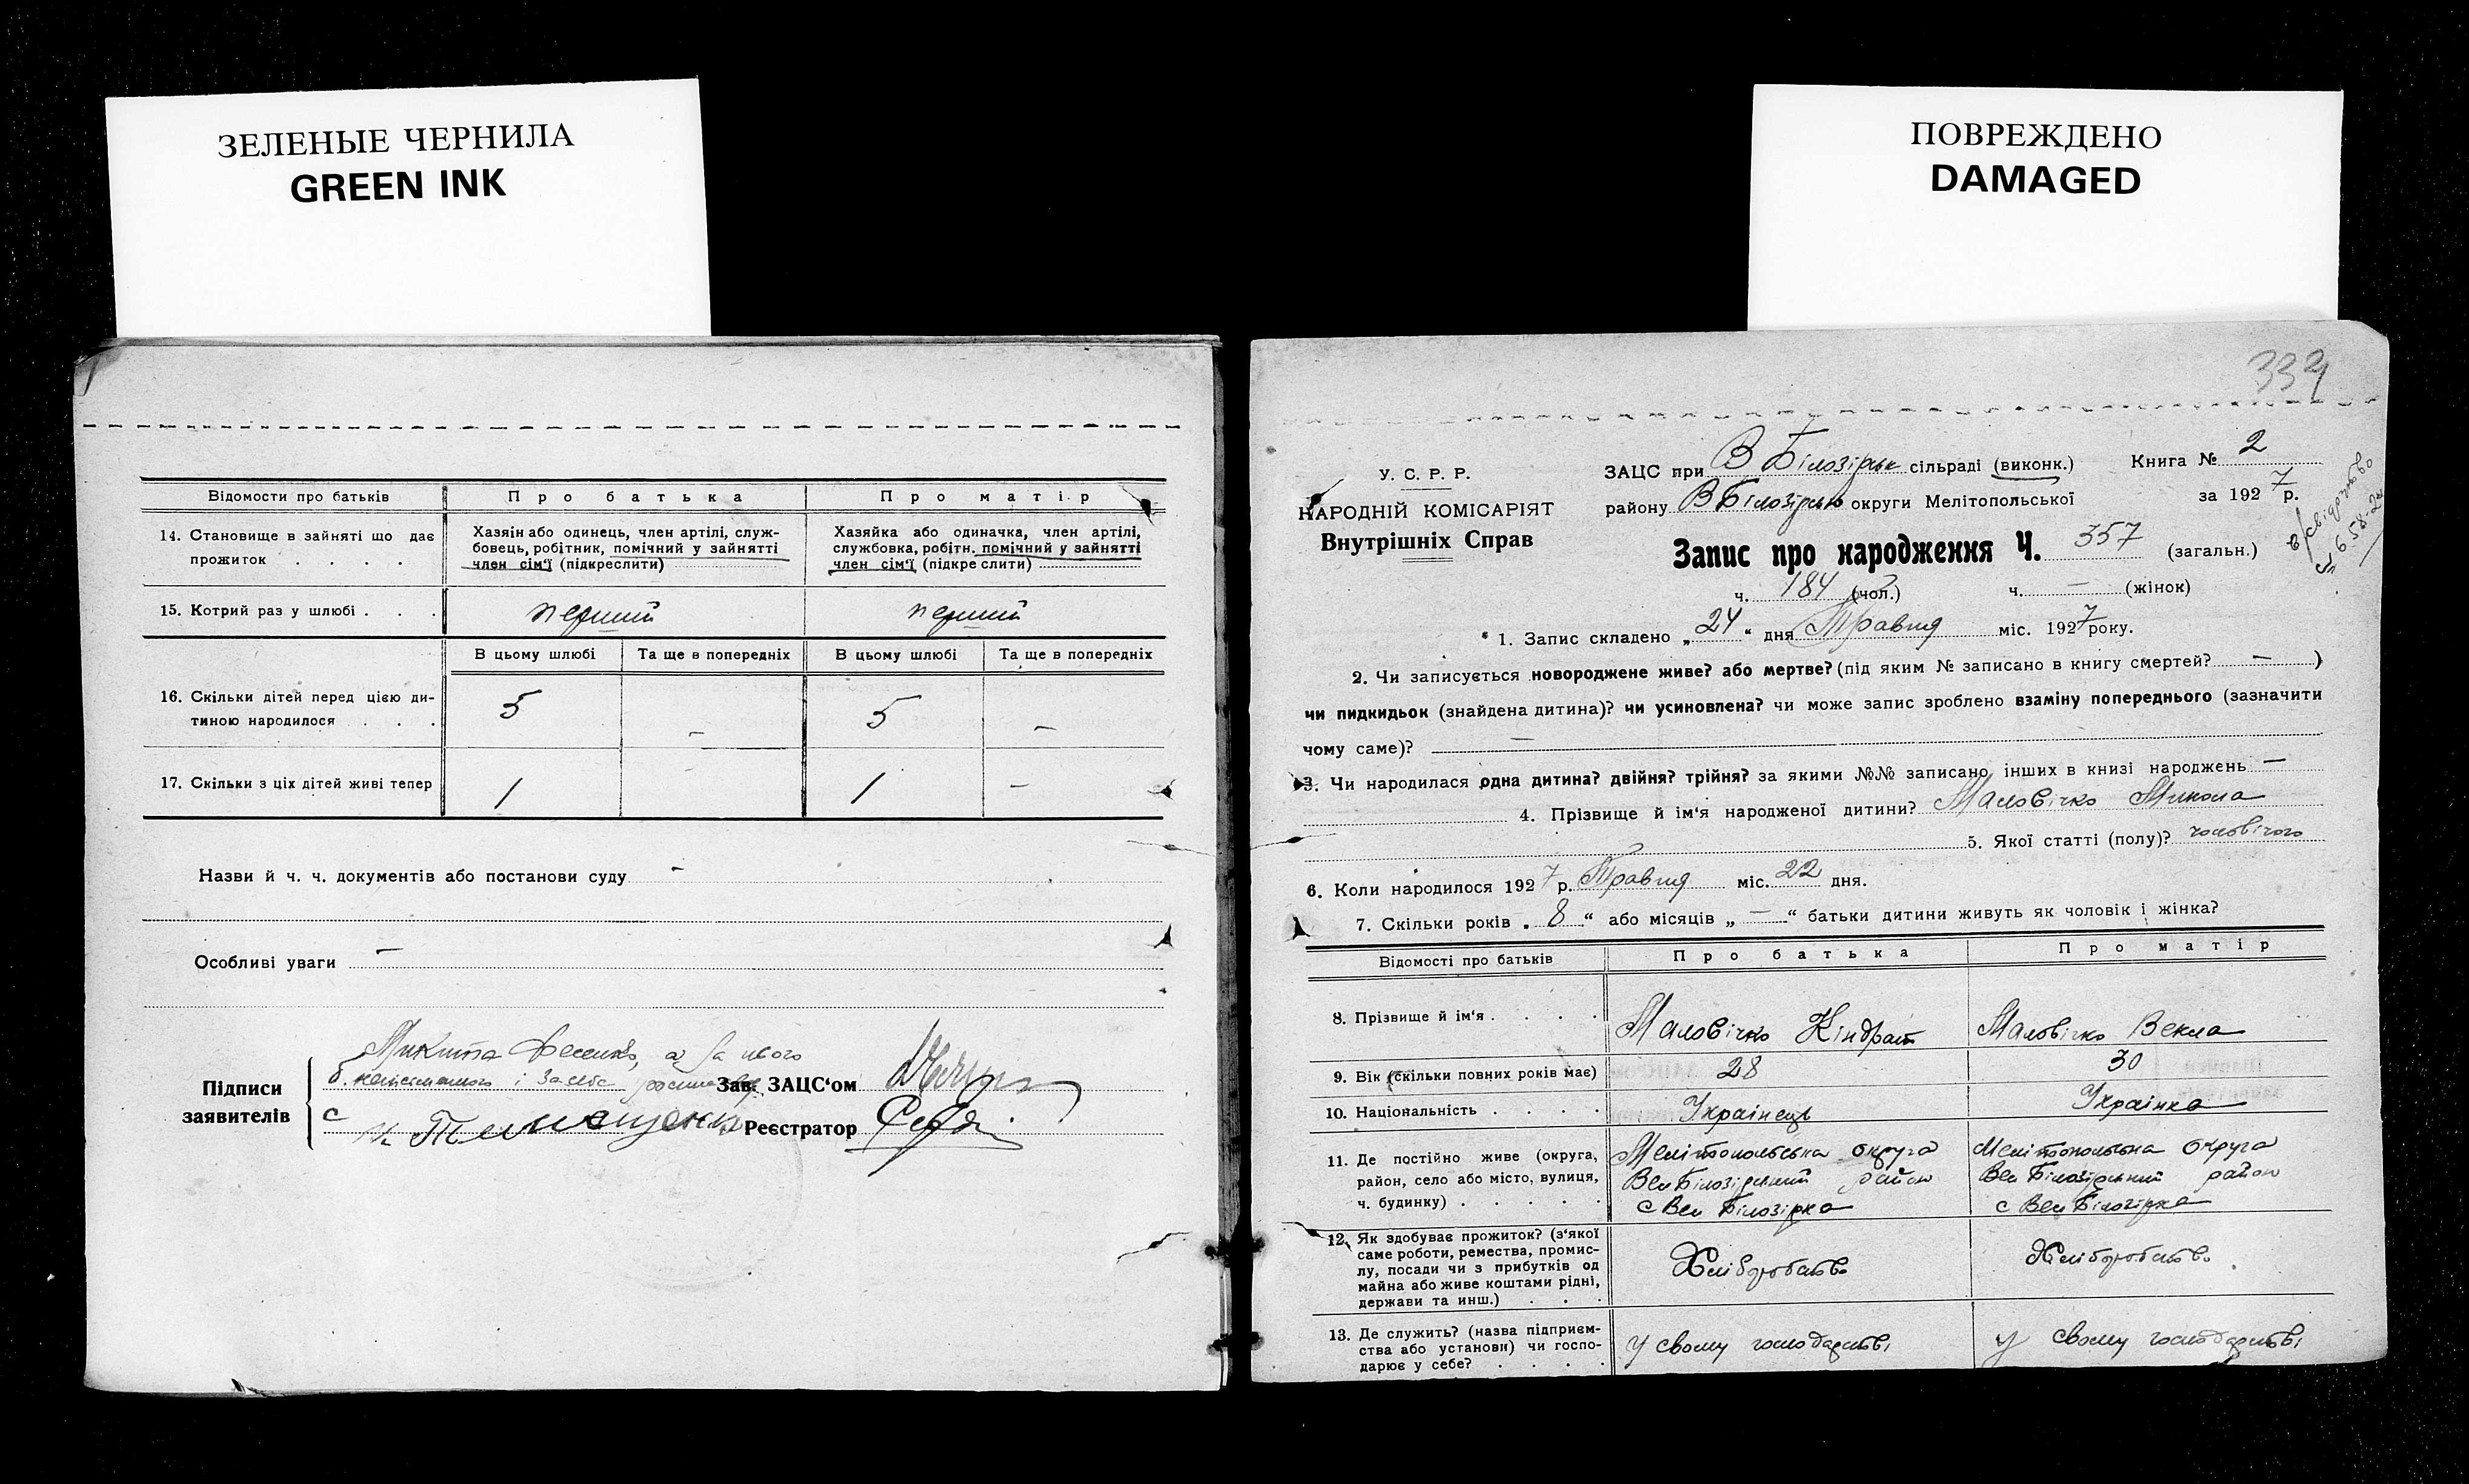 ЗЕЛЕНЫЕ ЧЕРНИЛА
GREEN INK
ПОВРЕЖДЕНО
DAMAGED
Відомости про батьків
Про батька
Про матір
14. Становище в зайняті що дає прожиток . . . .
Хазяін або одинець, член артілі, служ-
бовець, робітник, помічний у зайнятті
член сім'ї (підкреслити)
Хазяйка або одиначка, член артілі,
службовка, робітн. помічний у зайнятті
член сім'ї (підкреслити)
15. Котрий раз у шлюбі . . .
перший
перший
В цьому шлюбі
Та ще в попередніх
В цьому шлюбі
Та ще в попередніх
16. Скільки дітей перед цією ди-
тиною народилося . . .
5
–
5
–
17. Скільки з ціх дітей живі тепер
1
–
1
–
Назви й ч. ч. документів або постанови суду –
Особливі уваги –
Підписи
заявителів
Микита
Зав. ЗАЦС'ом
Реєстратор
334
У. С. Р. Р.
НАРОДНІЙ КОМІСАРІЯТ
Внутрішніх Справ
ЗАЦС при В Білозірськ сільраді (виконк.)
Книга № 2
району В Білозірськ округи Мелітопольської
за 1927 р.
Запис про народження Ч. 357 (загальн.)
ч. 184 (чол.) ч. – (жінок)
1. Запис складено „24“ дня Травня міс. 1927 року.
2. Чи записується новороджене живе? або мертве? (під яким № записано в книгу смертей? – )
чи пидкидьок (знайдена дитина)? чи усиновлена? чи може запис зроблено взаміну попереднього (зазначити
чому саме)? –
3. Чи народилася одна дитина? двійня? трійня? за якими №№ записано інших в книзі народжень –
4. Прізвище й ім'я народженої дитини? Маловічко Микола
5. Якої статті (полу)? чоловічого
6. Коли народилося 1927 р. Травня міс. 22 дня.
7. Скільки років „8“ або місяців „–“ батьки дитини живуть як чоловік і жінка?
Відомості про батьків
Про батька
Про матір
8. Прізвище й ім'я . . . .
Маловічко Кіндрат
Маловічко Векла
9. Вік (скільки повних років має)
28
30
10. Національність . . . .
Українець
Українка
11. Де постійно живе (округа,
район, село або місто, вулиця,
ч. будинку) . . . . .
Мелітопольська округа
Вел Білозірський район
с Вел Білозірка
Мелітопольська округа
Вел Білозірський район
с Вел Білозірка
12. Як здобуває прожиток? (з'якої
саме роботи, ремества, промис-
лу, посади чи з прибутків од
майна або живе коштами рідні,
держави та инш.) . . .
Хліборобство
Хліборобство
13. Де служить? (назва підприєм-
ства або установи) чи госпо-
дарює у себе? . . . .
У свому господарстві
у свому господарстві